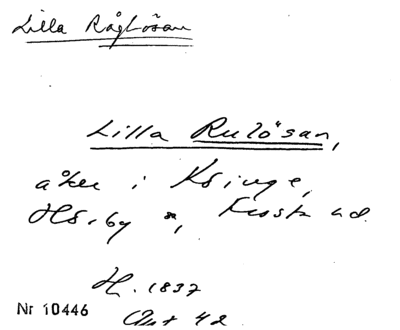 Lilla Råglösan
Lilla Rulösan,
åker i Ksinge,
Hs. by sn, Frosta hd.
H. 1837
Akt 42
Nr 10446